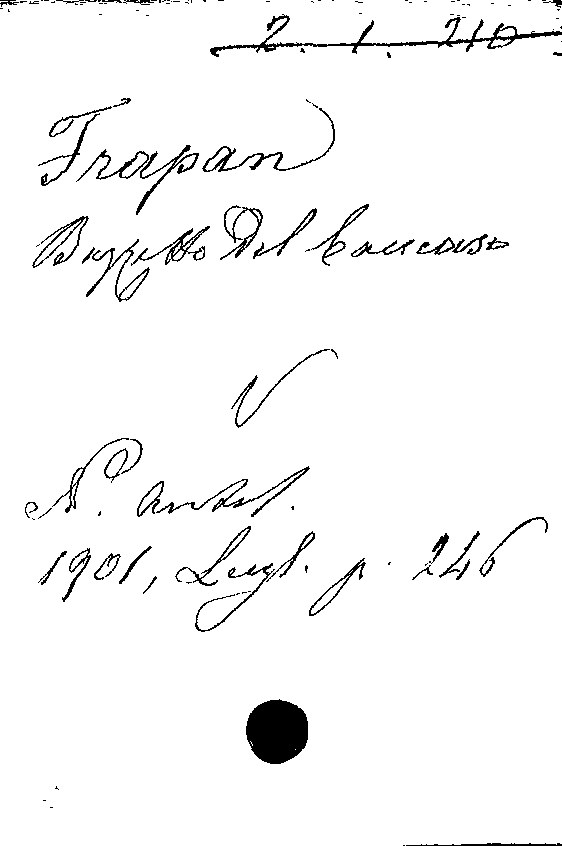 2. 1. 210
Frapan
Bozzetto Del Caucaso
V
N. Antol.
1901, Lugl. p. 246